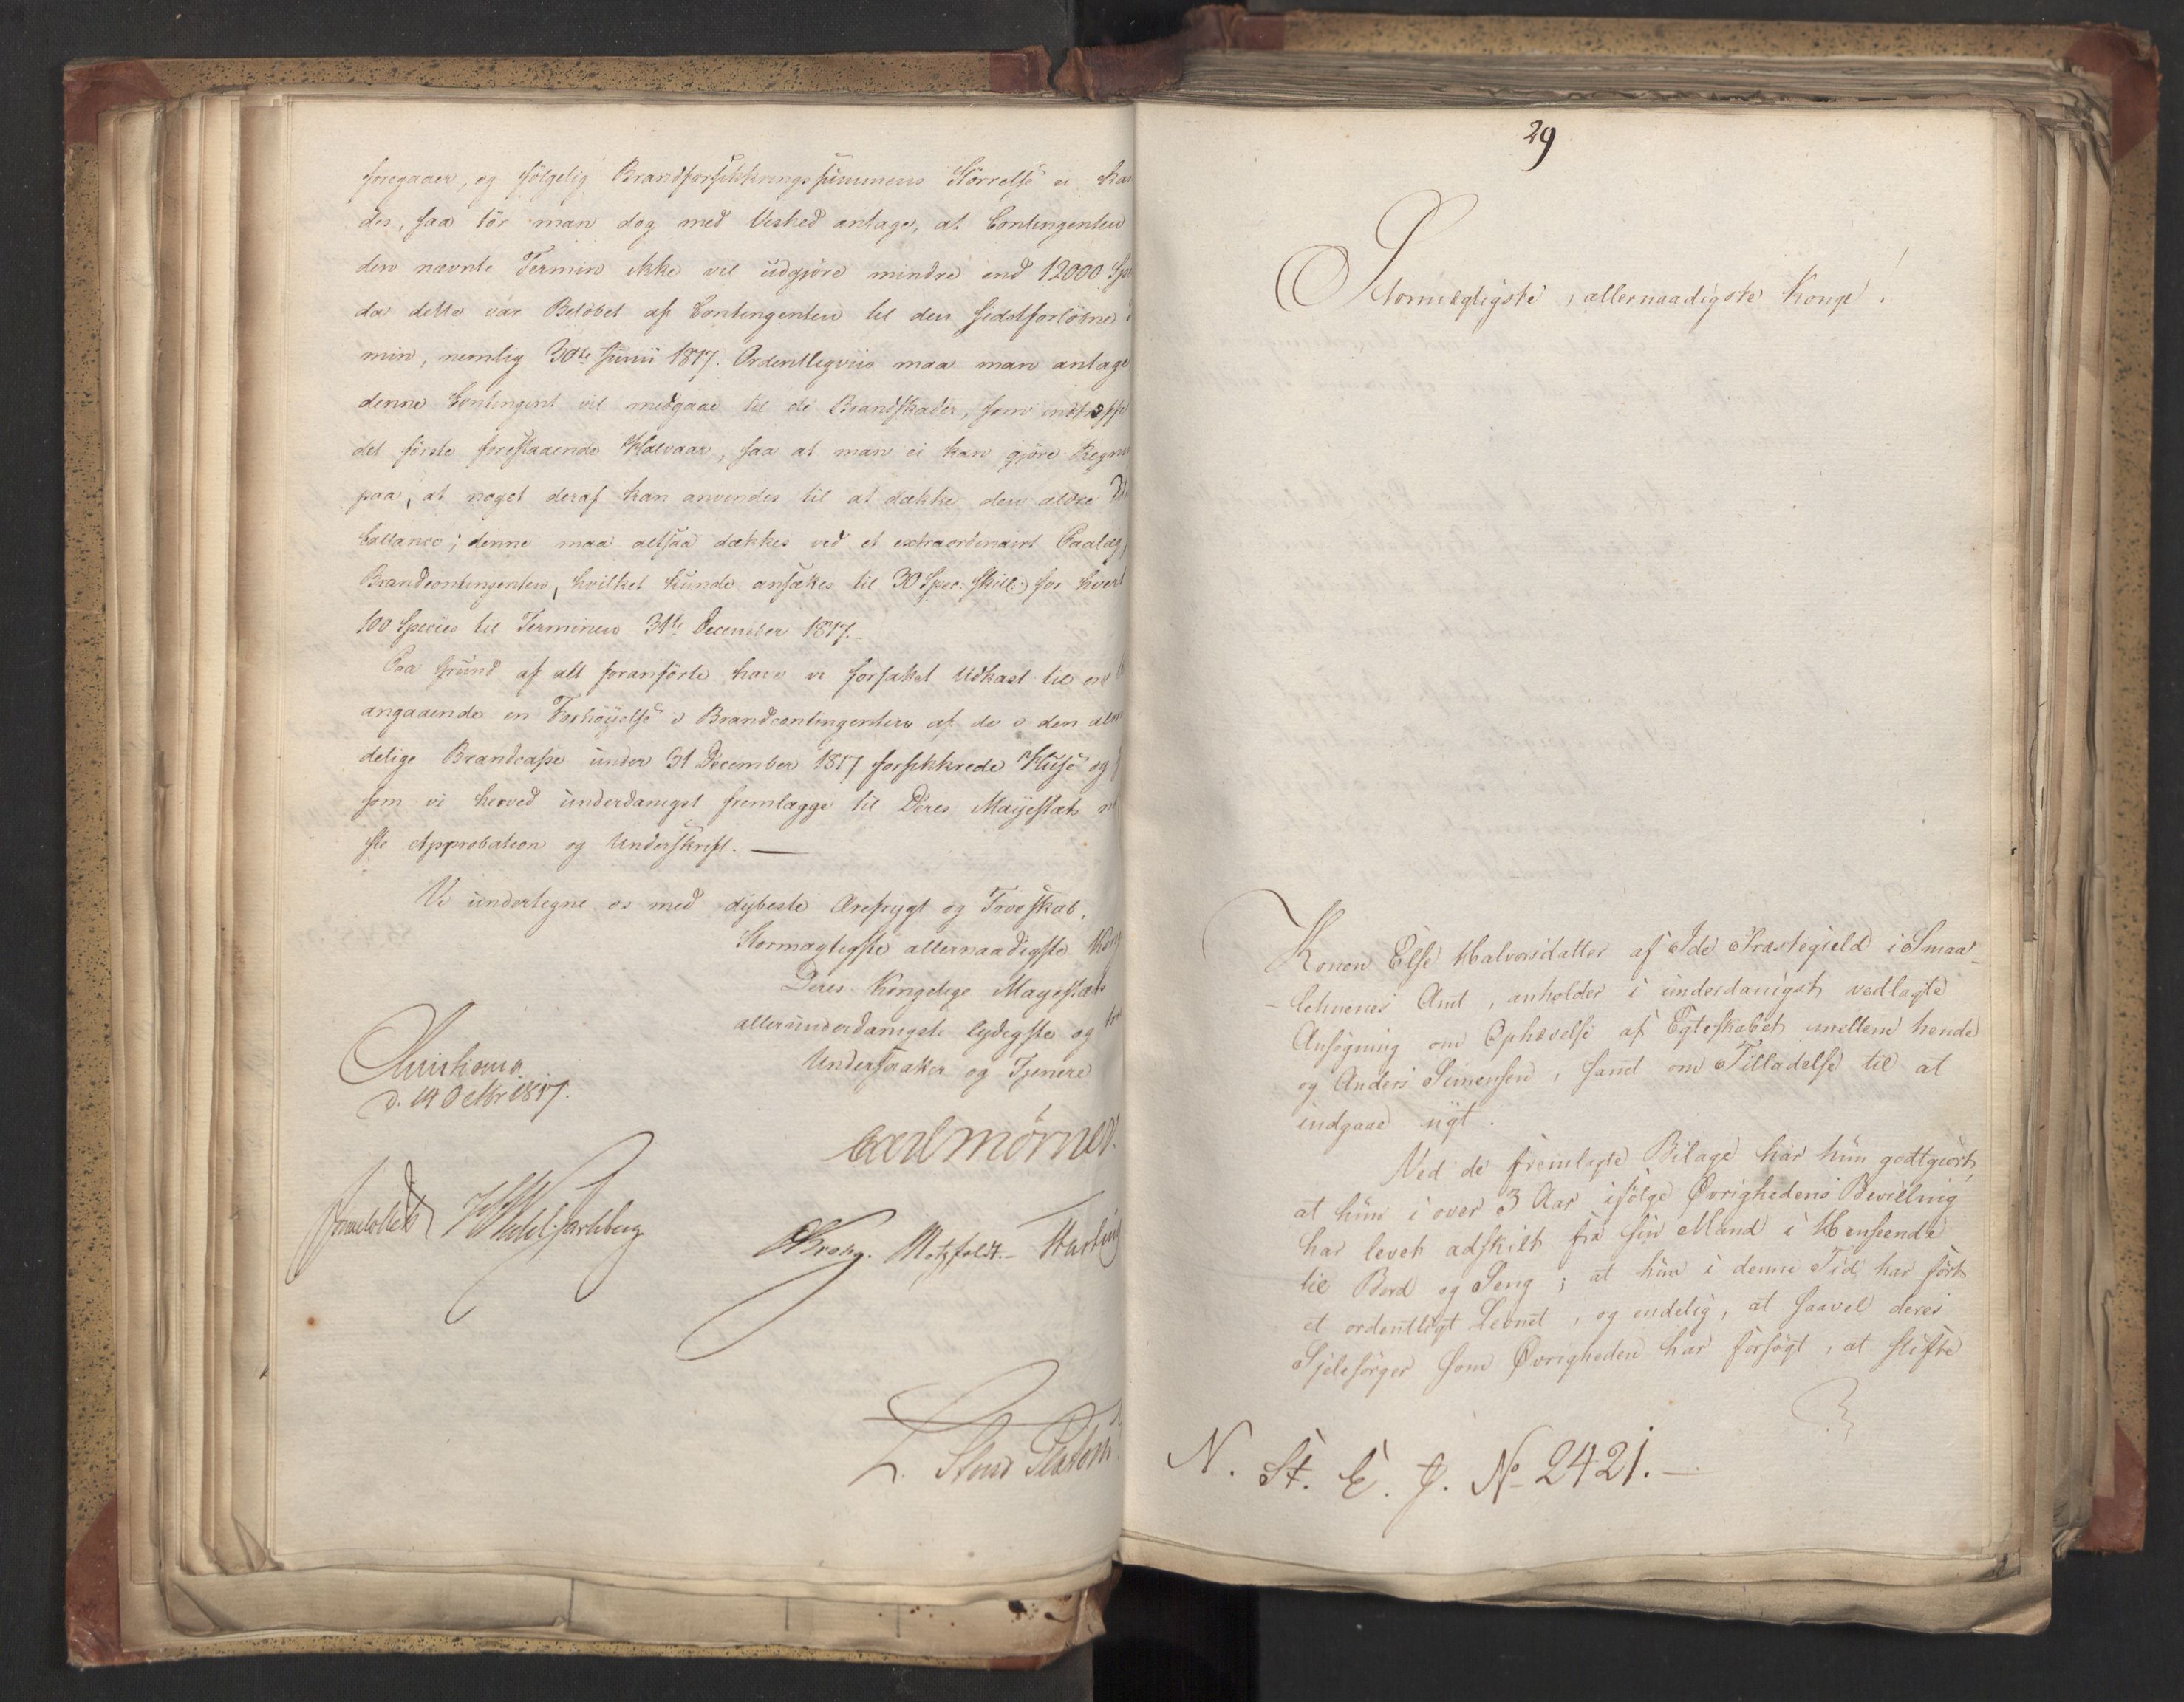 foregaaer, og følgelig Brandforsikkrings summens Störrelse ei kan
des, saa tör man dog med Vished antage, at Contingenten
den nævnte Termin ikke vil udgjöre mindre end 12000 Spe
da dette var Belöbet af Contingenten til den sidstforlöbne
min, nemlig 30te Junii 1817. Ordentligviis maa man antage
denne Contingent vil medgaae til de Brandskader, som indtreffe
det förste forestaaende Halvaar, saa at man ei kan gjöre Regn
paa, at noget deraf kan anvendes til at dække den ældre
ballance; denne maa altsaa dækkes ved et extraordinairt Paalæg
Brandcontingenten, hvilket kunde ansættes til 30 Spec: Skill: for hvert
100 Species til Terminen 31te December 1817.
Paa Grund af alt foranförte have vi forfattet Udkast til en
angaaende en Forhöyelse i Brandcontingenten af de i den alm
delige Brandcasse under 31 December 1817 forsikkrede Huse og
som vi herved underdanigst fremlægge til Deres Majestæts
ste Approbation og Underskrift. —
Vi undertegne os med dybeste Ærefrygt og Troeskab,
Stormægtigste allernaadigste Kong
Deres Kongelige Mayestæts
allerunderdanigste lydigste og
Undersaatter og Tjenere
Christiania
d. 14 Octbr 1817.
Carl Mörner.
Sommerhielm HWedel Jarlsberg
CKrohg. Motzfeldt. –
29
Stormægtigste, allernaadigste Konge!
Konen Else Halvorsdatter af Ide Præstegield i Smaa-
-lehnenes Amt, anholder i underdanigst vedlagte
Ansøgning om Ophævelse af Egteskabet mellem hende
og Anders Simensen, samt om Tilladelse til at
indgaae nyt.
Ved de fremlagte Bilage har hun godtgiort,
at hun i over 3 Aar ifølge Øvrighedens Bevilling
har levet adskilt fra sin Mand i Henseende
til Bord og Seng; at hun i denne Tid har ført
et ordentligt Levnet, og endelig, at saavel deres
Sjelesørger som Øvrigheden har forsøgt, at stifte
N. St. E. J. No 2421. —